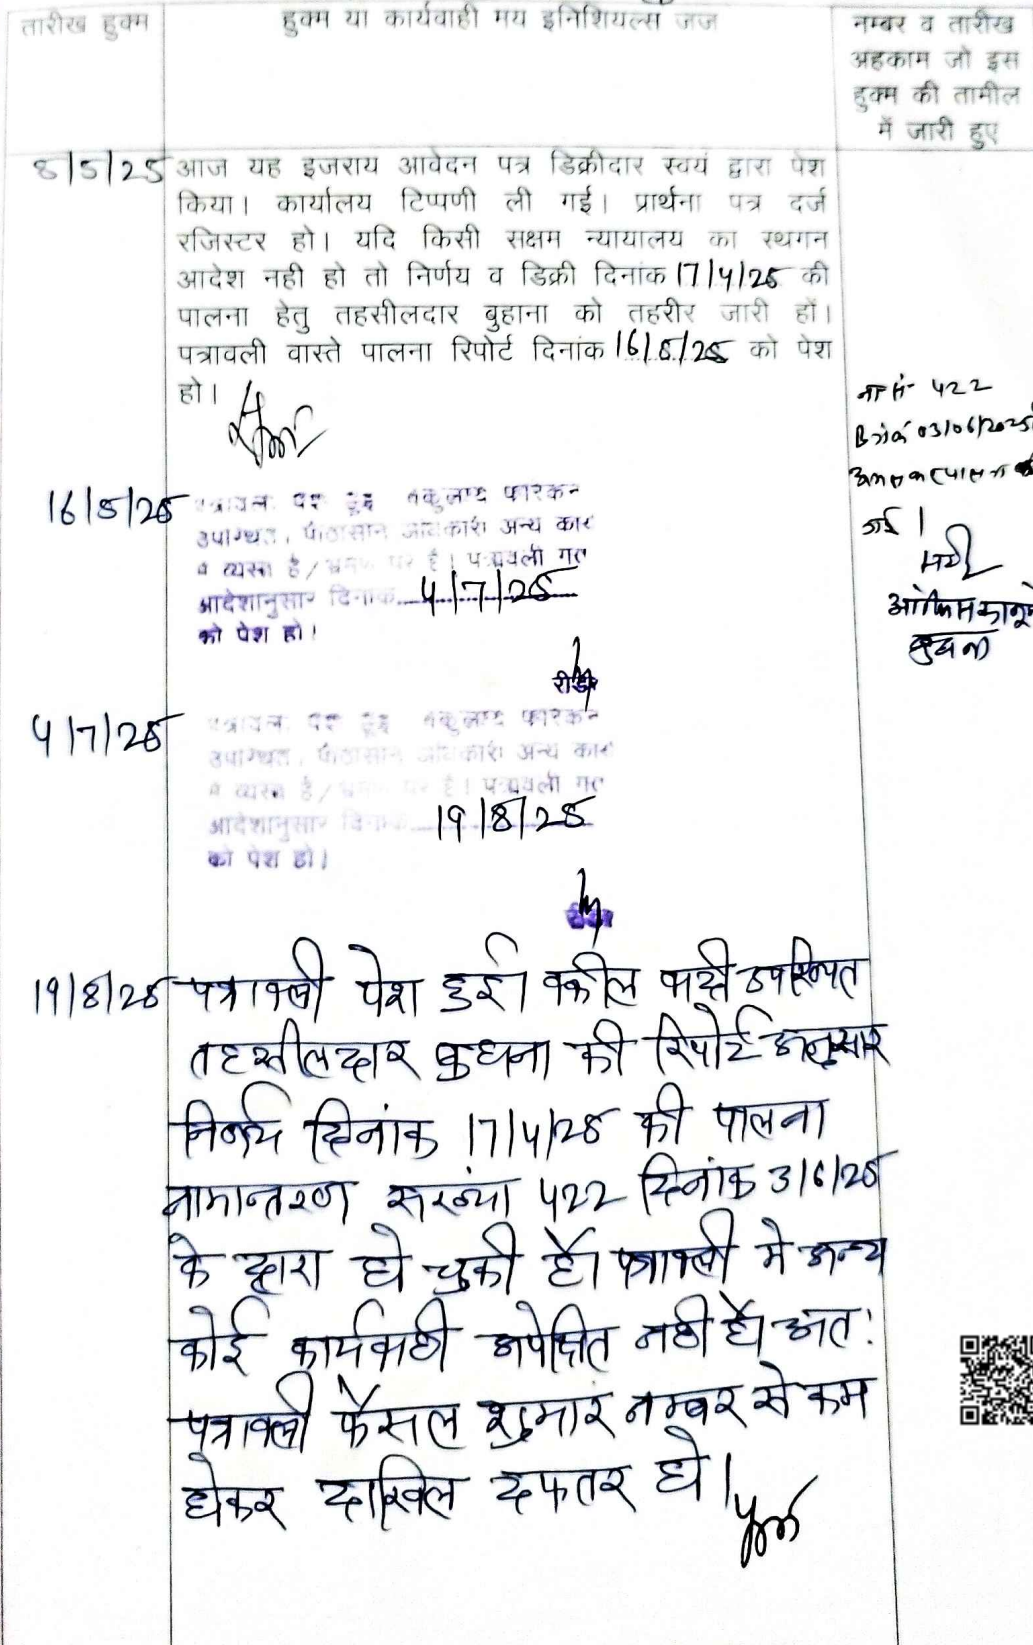 तारीख हुक्म
हुक्म या कार्यवाही मय इनिशियल्स जज
नम्बर व तारीख
अहकाम जो इस
हुक्म की तामील
में जारी हुए
8/5/25 आज यह इजराय आवेदन पत्र डिक्रीदार स्वयं द्वारा पेश
किया। कार्यालय टिप्पणी ली गई। प्रार्थना पत्र दर्ज
रजिस्टर हो। यदि किसी सक्षम न्यायालय का स्थगन
आदेश नही हो तो निर्णय व डिक्री दिनांक 17/4/25 की
पालना हेतु तहसीलदार बुहाना को तहरीर जारी हों।
पत्रावली वास्ते पालना रिपोर्ट दिनांक 16/5/25 को पेश
हो।
422
03/06/2025
गई।
16/5/25
उपस्थित, अन्य कार्य
व्यस्त है/भ्रमण पर है। पत्रावली गत
आदेशानुसार दिनांक 4/7/25
को पेश हो।
रीडर
4/7/25
उपस्थित, अन्य कार्य
व्यस्त है/भ्रमण पर है। पत्रावली गत
आदेशानुसार दिनांक 19/8/25
को पेश हो।
रीडर
19/8/25 पत्रावली पेश हुई। वकील वादी उपस्थित
तहसीलदार बुहाना की रिपोर्ट अनुसार
निर्णय दिनांक 17/4/25 की पालना
नामान्तरण संख्या 422 दिनांक 3/6/25
के द्वारा हो चुकी है। पत्रावली मे अन्य
कोई कार्यवाही अपेक्षित नही है। अत:
पत्रावली फैसल शुमार नम्बर से कम
होकर दाखिल दफतर हो।